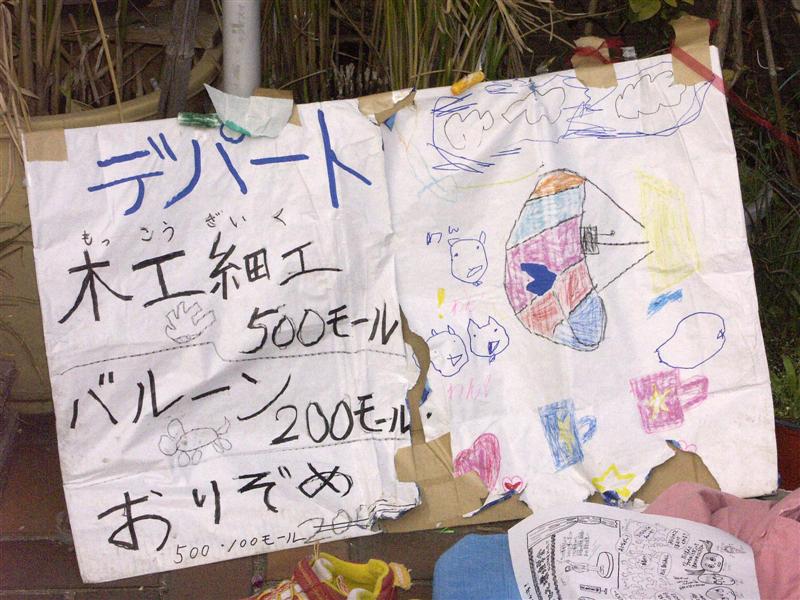 デパート
もっ こう ざい く
木工細工
500モール
バルーン
200モール
おりぞめ
500・100モール
わん